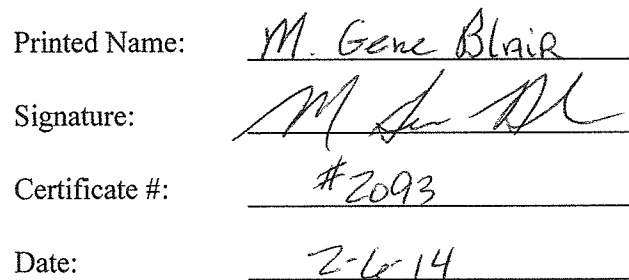 Printed Name: M. Gene Blair
Signature: M Gene Bl
Certificate #: #2093
Date: 2-6-14